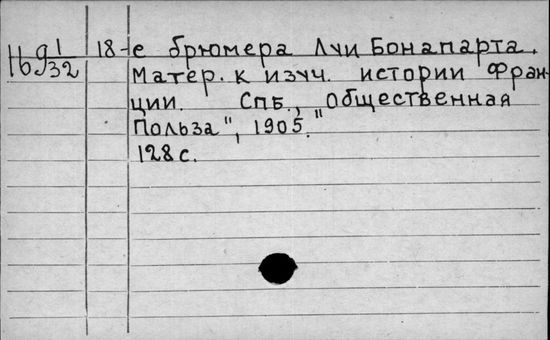 18-е брюмера Луи Бонапарта.
Матер. к изуч. истории Фран-
ции. Спб., „Общественная
Польза", 1905."
128 с.